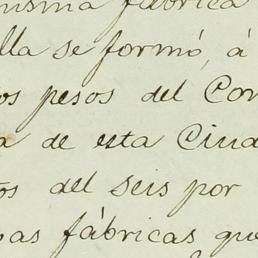 misma fábrica
lla se formó, á
os pesos del Con
a de esta Ciud
os del seis por
as fábricas que